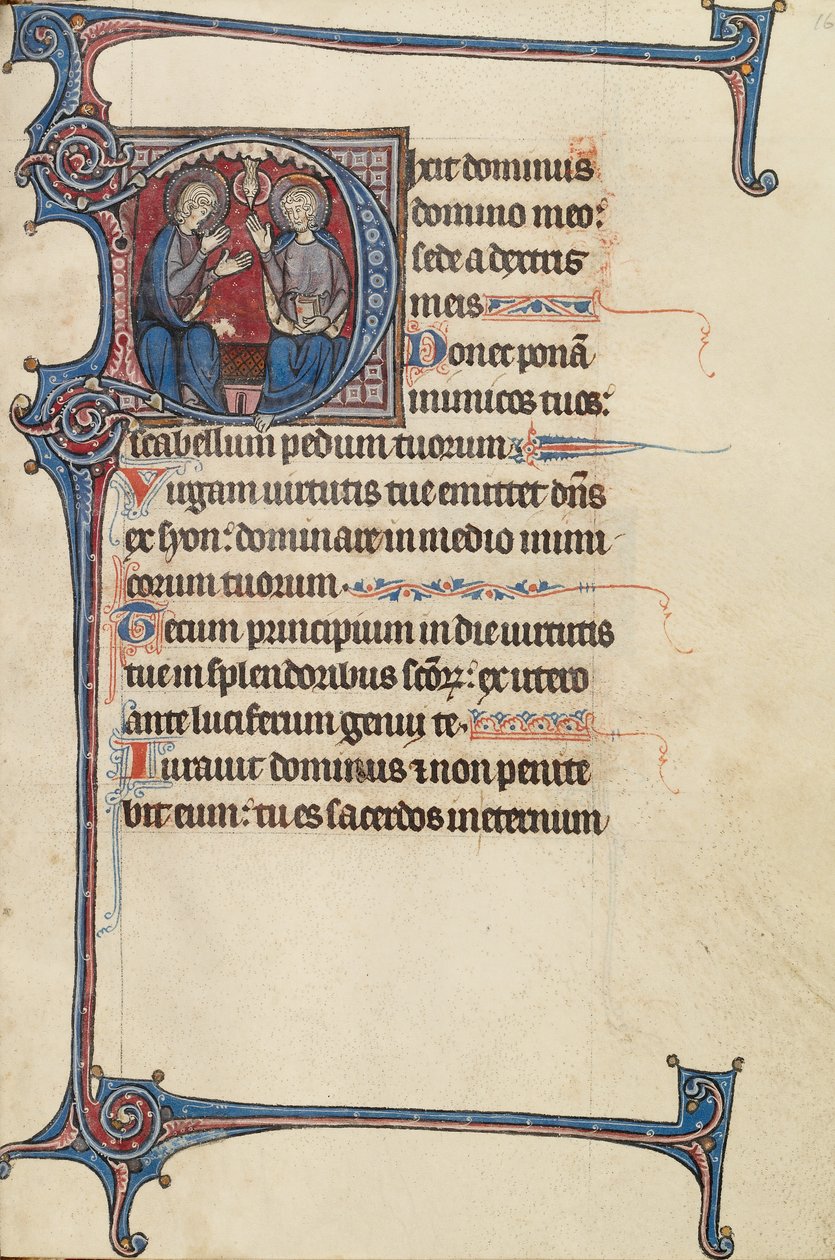 Dixit dominus
domino meo:
sede a dextris
meis
Donec ponā
inimicos tuos:
scabellum pedum tuorum
Virgam uirtutis tue emittet dn̄s
ex syon: dominare in medio inimi
corum tuorum.
Tecum principium in die uirtutis
tue in splendoribus scōꝝ: ex utero
ante luciferum genui te.
Iurauit dominus ⁊ non penite
bit eum: tu es sacerdos in eternum